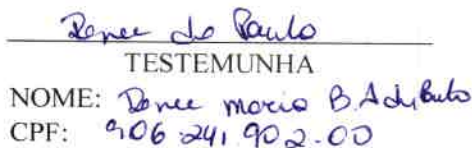 Renee de Paulo
TESTEMUNHA
NOME: Renee maria B. A de Paulo
CPF: 906.241.902-00